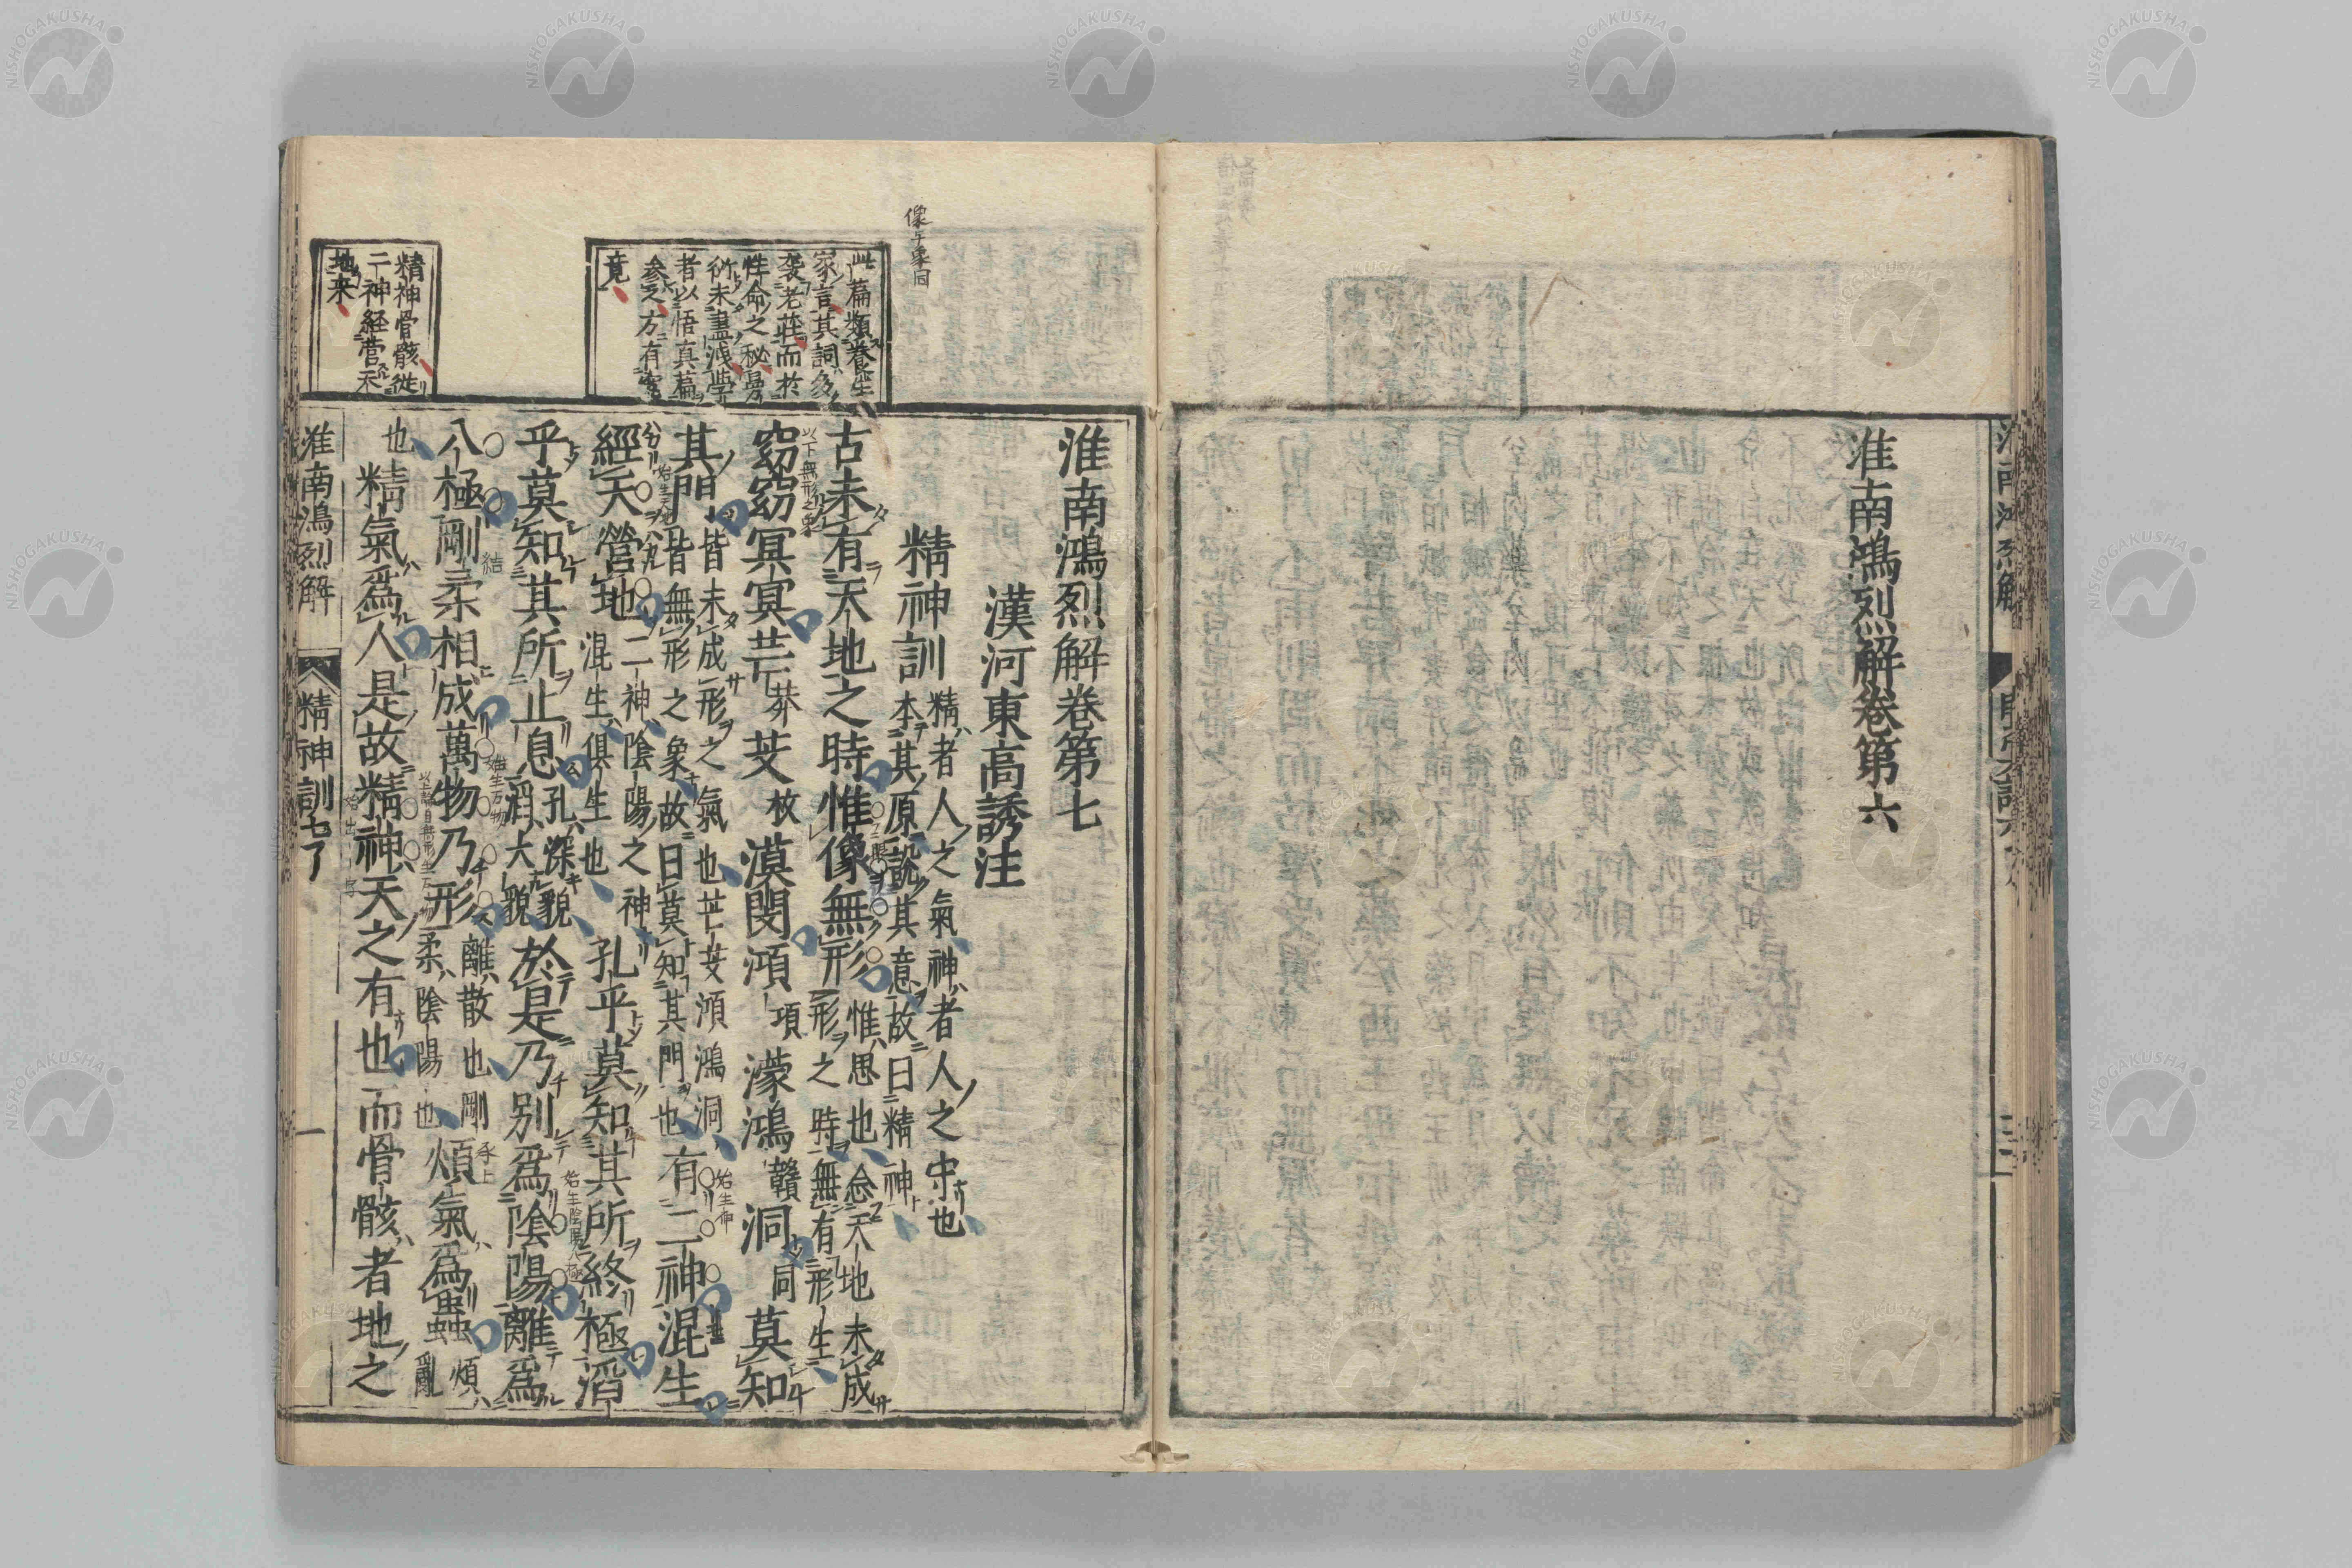 淮南鴻烈解卷第六
淮南鴻烈解卷第七
漢河東高誘注
精神訓 精者人之氣神者人之守也
本其原說其意故曰精神
古未有天地之時惟像無形 惟思也念天地未成
形之時無有形生
窈窈冥冥芒 莽 芠 枚 漠閔澒 項 濛鴻 贛 洞 同 莫知
其門 皆未成形之氣也芒芠澒鴻洞
皆無形之象故曰莫知其門也
有二神混生
經天營地 二神陰陽之神
混生俱生也
孔乎莫知其所終極滔
乎莫知其所止息 孔深貌
滔大貌
於是乃別爲陰陽離爲
八極剛柔相成萬物乃形 離散也剛
柔陰陽也
煩氣爲蟲 煩
亂
也 精氣爲人是故精神天之有也而骨骸者地之
淮南鴻烈解 精神訓七 一
像與象同
此篇類養生
家言其詞多
襲老莊而於
性命之秘曼
衍未盡淺學
者以悟真篇
參之方有究
竟
精神骨骸從
二神経営天
地来
以下無形之象
始生天地
始生神
始生陰陽八極
始生万物
結
承上
NISHOGAKUSHA